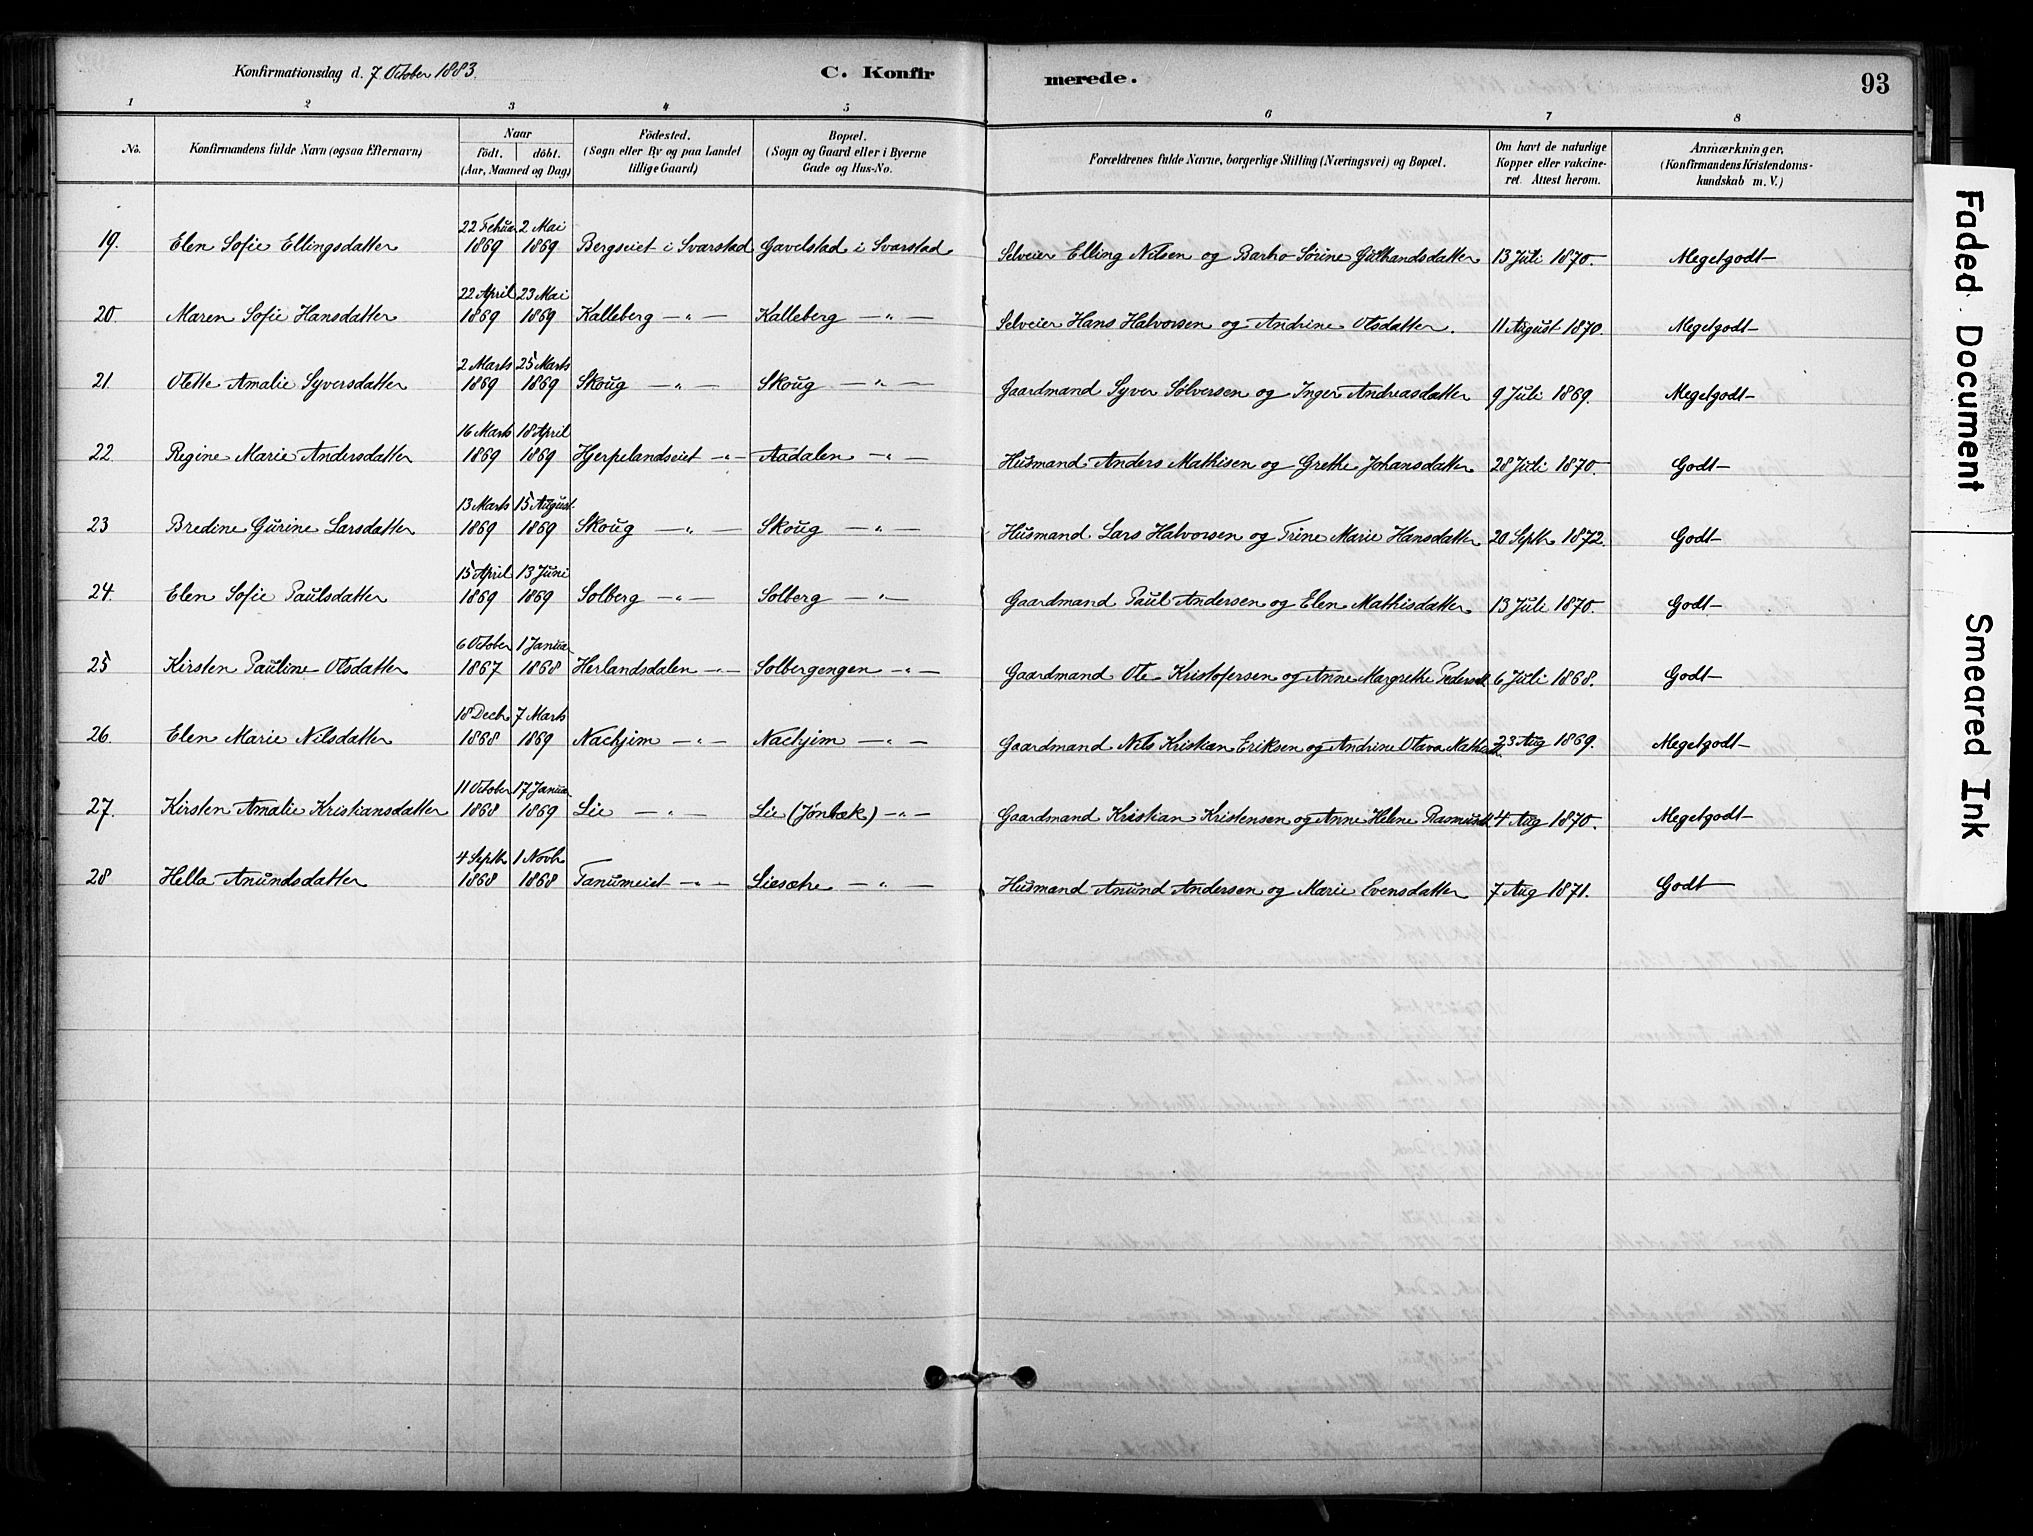 Konfirmationsdag d. 7 October 1883. C. Konfirmerede. 93
1 2 3 4 5 6 7 8
No. Konfirmandens fulde Navn (ogsaa Efternavn) Naar födt. döbt. (Aar, Maaned og Dag) Födested. (Sogn eller By og paa Landet tillige Gaard) Bopæl. (Sogn og Gaard eller i Byerne Gade og Hus-No. Forældrenes fulde Navne, borgerlige Stilling (Næringsvei) og Bopæl. Om havt de naturlige Kopper eller vakcineret. Attest herom. Anmærkninger, (Konfirmandens Kristendomskundskab m. V.)
19. Elen Sofie Ellingsdatter 22 Febua 1869 2 Mai 1869 Bergseiet i Svarstad Gavelstad i Svarstad Selveier Elling Nilsen og Barbo Sørine Gulhandsdatter 13 Juli 1870. Megetgodt
20. Maren Sofie Hansdatter 22 April 1869 23 Mai 1869 Kalleberg — " — Kalleberg — " — Selveier Hans Halvorsen og Andrine Olsdatter. 11 August 1870. Megetgodt
21. Olette Amalie Syversdatter 2 Marts 1869 25 Marts 1869 Skoug — " — Skoug — " — Gaardmand Syver Sølversen og Inger Andreasdatter 9 Juli 1869. Megetgodt
22. Regine Marie Andersdatter 16 Marts 1869 18 April 1869 Hjerpelandseiet — " — Aadalen — " — Husmand Anders Mathisen og Grethe Johansdatter 28 Juli 1870. Godt
23 Bredine Gurine Larsdatter 13 Marts 1869 15 August 1869 Skoug — " — Skoug — " — Husmand Lars Halvorsen og Trine Marie Hansdatter 20 Septb 1872. Godt
24. Elen Sofie Paulsdatter 15 April 1869 13 Juni 1869 Solberg — " — Solberg — " — Gaardmand Paul Andersen og Elen Mathisdatter 13 Juli 1870. Godt
25 Kirsten Pauline Olsdatter 6 October 1867 1 Janua 1868 Herlandsdalen — " — Solbergengen — " — Gaardmand Ole Kristofersen og Anne Margrethe Pedersd 6 Juli 1868. Godt
26. Elen Marie Nilsdatter 18 Decb 1868 7 Marts 1869 Nachjim — " — Nachjim — " — Gaardmand Nils Kristian Eriksen og Andrine Olava Mathisd. 23 Aug 1869. Megetgodt
27. Kirsten Amalie Kristiansdatter 11 October 1868 17 Janua 1869 Lie — " — Lie (Jønbæk) — " — Gaardmand Kristian Kristensen og Anne Helene Rasmusd 4 Aug 1870. Megetgodt
28 Hella Anundsdatter 4 Septb 1868 1 Novb 1868 Tanumeiet — " — Liesætre — " — Husmand Anund Andersen og Marie Evensdatter 7 Aug 1871. Godt
Faded Document
Smeared Ink